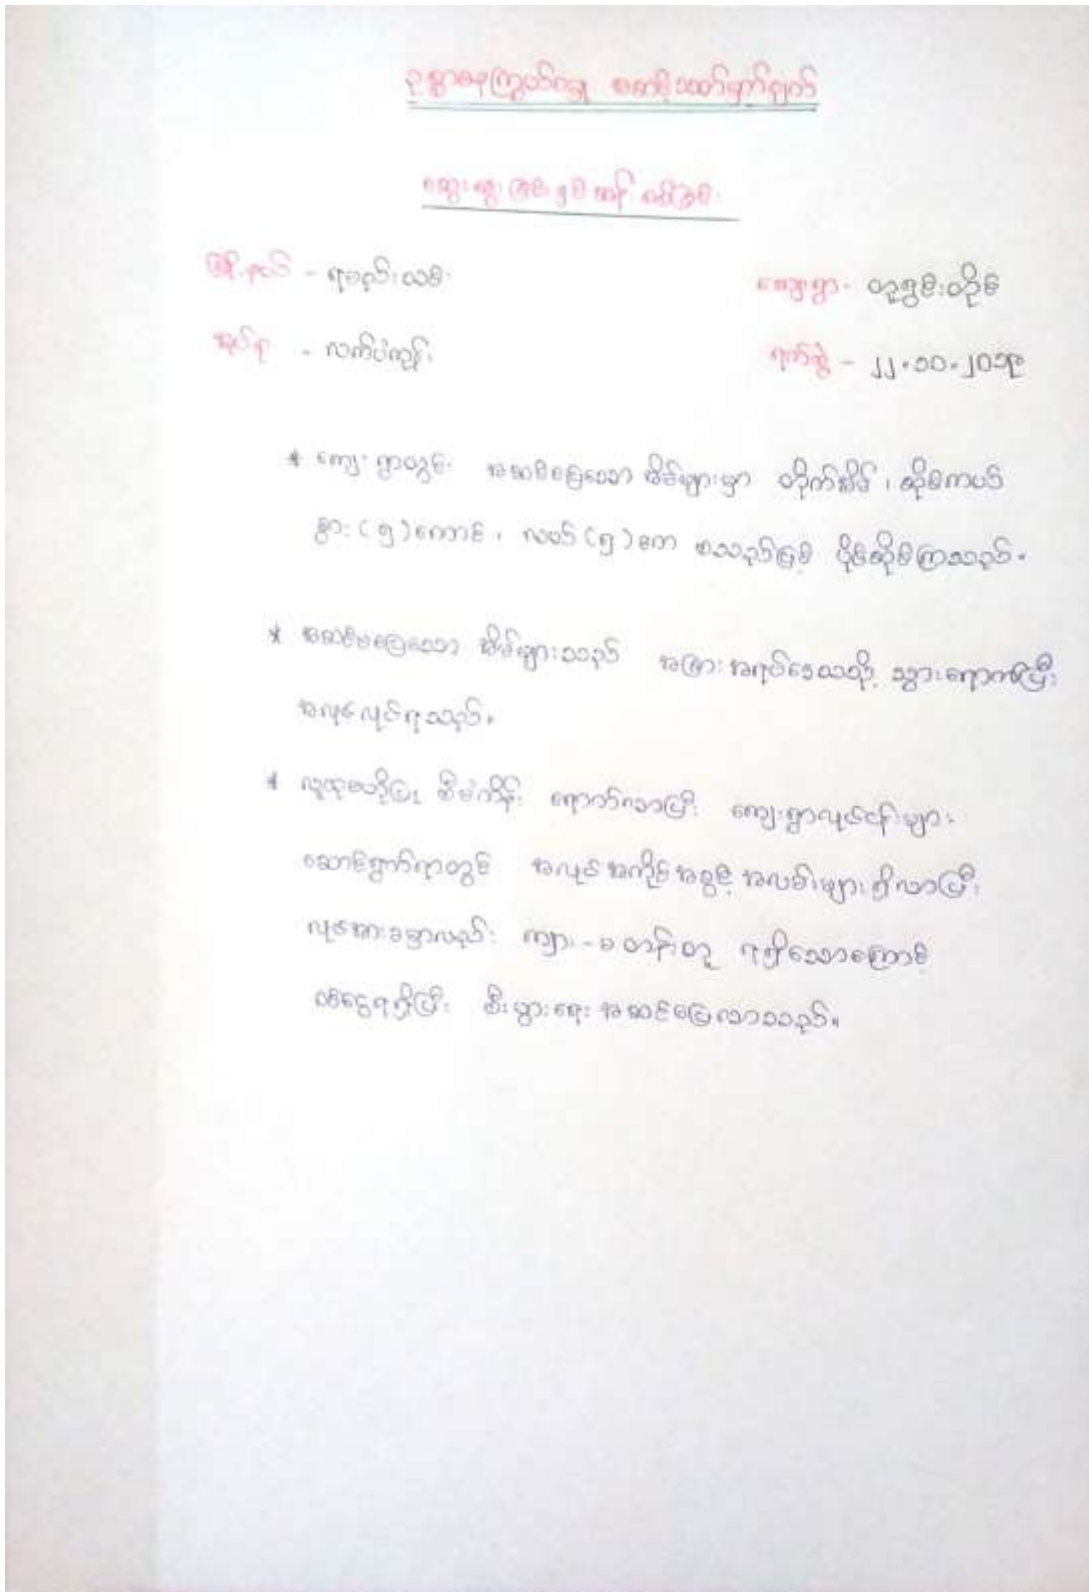 ဥစ္စာဓနကြွယ်ဝမှု အဆင့်သတ်မှတ်ချက်
ဆွေးနွေးခြင်းမှစ်ဆန်းစစ်ခြင်း
မြို့နယ် - ရမည်းသင်း
ကျေးရွာ - တူရွင်းတိုင်
အုပ်စု - လက်ပံကျွန်း
ရက်စွဲ - ၂၂.၁၀.၂၀၁၉
* ကျေးရွာတွင် အဆင်ပြေသော အိမ်များမှာ တိုက်အိမ်၊ ဆိုင်ကယ်
နွား(၅)ကောင်၊ လယ်(၅)ဧက စသည်ဖြင့် ပိုင်ဆိုင်ကြသည်။
* အဆင်မပြေသော အိမ်များသည် အခြားအရပ်ဒေသသို့ သွားရောက်ပြီး
အလုပ်လုပ်ရသည်။
* လူထုဗဟိုပြု စီမံကိန်း ရောက်လာပြီး ကျေးရွာလုပ်ငန်းများ
ဆောင်ရွက်ရာတွင် အလုပ်အကိုင်အခွင့်အလမ်းများရှိလာပြီး
လုပ်အားခမှာလည်း ကျား-မ တန်းတူ ရရှိသောကြောင့်
ဝင်ငွေရရှိပြီး စီးပွားရေးအဆင်ပြေလာသည်။